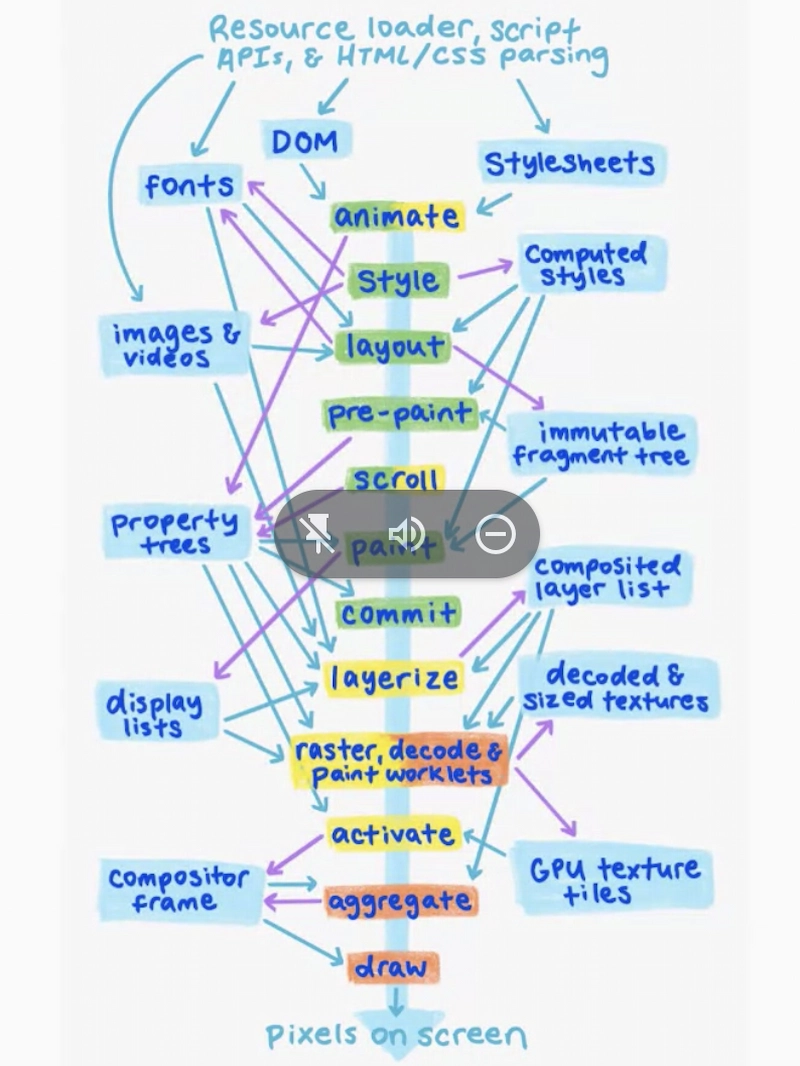 Resource loader, script
APIs, & HTML/CSS parsing
DOM
Stylesheets
fonts
animate
Computed
styles
Style
images &
videos
layout
pre-paint
immutable
fragment tree
scroll
property
trees
paint
composited
layer list
commit
layerize
decoded &
sized textures
display
lists
raster, decode &
paint worklets
activate
GPU texture
tiles
compositor
frame
aggregate
draw
Pixels on screen